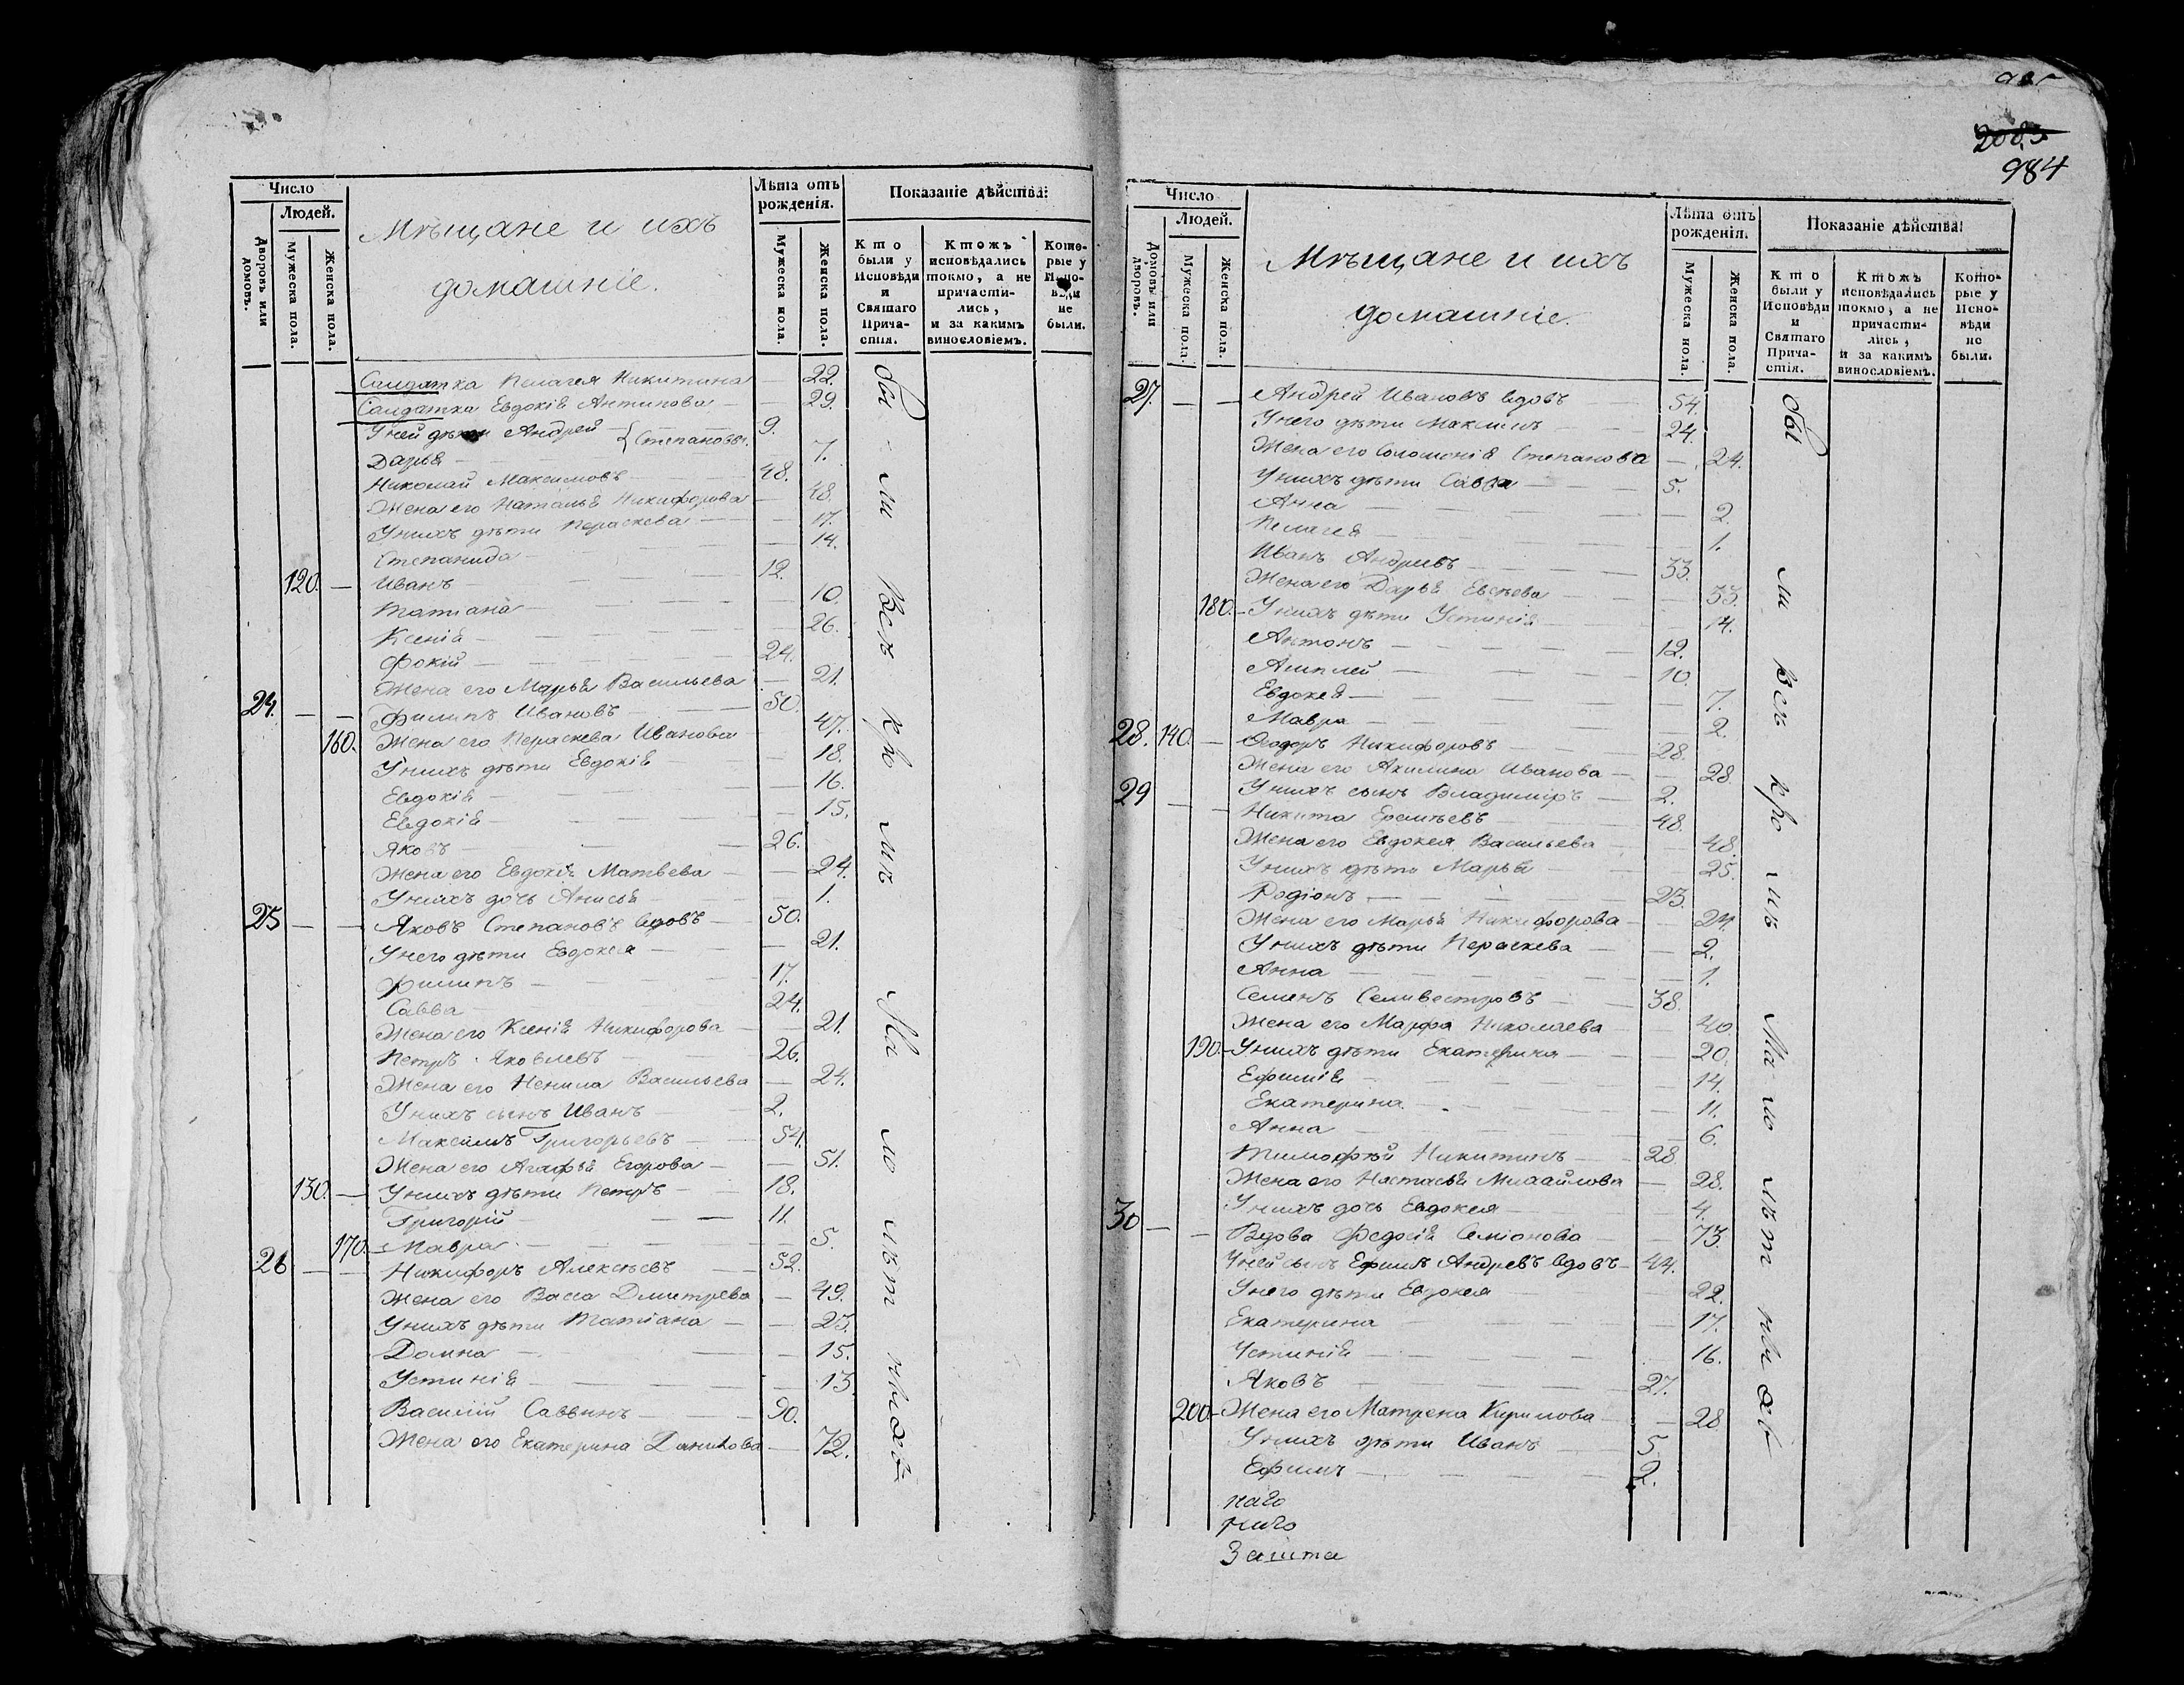 2083
984
Число
Людей.
Дворовъ или домовъ.
Мужеска пола.
Женска пола.
Мѣщане и ихъ
домашніе.
Лѣта отъ рожденія.
Мужеска пола.
Женска пола.
Показаніе дѣйства:
Кто были у Исповѣди и Святаго Прича-стія.
Ктожъ исповѣдались токмо, а не причасти-лись, и за какимъ винословіемъ.
Кото-рые у Испо-вѣди не были.
Салдатка Пелагея Никитина — 22.
Салдатка Евдокія Антипова — 29.
У ней дѣти Андрей — {Степановы. 9.
Дарья — 7.
Николай Максимовъ 48.
Жена его Наталья Никифорова — 48.
У нихъ дѣти Пераскева — 17.
Степанида — 14.
120. — Иванъ — 12.
Татіана — 10.
Ксенія — 26.
Фокій — 24.
Жена его Марья Васильева — 21.
24. — — Филипъ Ивановъ — 50.
160. Жена его Пераскева Иванова 47.
У нихъ дѣти Евдокія — 18.
Евдокія — 16.
Евдокія — 15.
Яковъ — 26.
Жена его Евдокія Матвева — 24.
У нихъ дочь Анисья — 1.
25 — — Яковъ Степановъ вдовъ — 50.
У него дѣти Евдокея — 21.
Филипъ — 17.
Савва — 24.
Жена его Ксенія Никифорова — 21.
Петръ Яковлевъ — 26.
Жена его Ненила Васильева — 24.
У нихъ сынъ Иванъ — 2.
Максимъ Григорьевъ — 54.
Жена его Агафья Егорова — 51.
130. — У нихъ дѣти Петръ — 18.
Григорій — 11.
170. — Мавра — 5.
26 — — Никифоръ Алексѣевъ — 52.
Жена его Васса Дмитрева — 49.
У нихъ дѣти Татіана — 23.
Домна — 15.
Устинія — 13
Василій Саввинъ — 90.
Жена его Екатерина Данилова — 72.
бы ли всѣ кро мѣ Ма ло лѣт ныхъ
Число
Людей.
Домовъ или дворовъ.
Мужеска пола.
Женска пола.
Мѣщане и ихъ
домашніе.
Лѣта отъ рожденія.
Мужеска пола.
Женска пола.
Показаніе дѣйства:
Кто были у Исповѣди и Святаго Прича-стія.
Ктожъ исповѣдались токмо, а не причасти-лись, и за какимъ винословіемъ.
Кото-рые у Испо-вѣди не были.
27. — — Андрей Ивановъ вдовъ 54.
У него дѣти Максимъ — 24.
Жена его Соломонія Степанова — 24.
У нихъ дѣти Савва — 5.
Анна — 2.
Пелагея — 1.
Иванъ Андревъ — 33.
Жена его Дарья Евсѣева — 33.
180. — У нихъ дѣти Устинія 14.
Антонъ — 12.
10.
Евдокея — 7.
Мавра — 2.
28. 140. — Ѳеодоръ Никифоровъ — 28.
Жена его Акилина Иванова — 28.
29 — — У нихъ сынъ Владиміръ — 2.
Никита Еремѣевъ — 48.
Жена его Евдокея Васильева — 48.
У нихъ дѣти Марья — 25.
Родіонъ — 23.
Жена его Марья Никифорова — 24.
У нихъ дѣти Пераскева — 2.
Анна — 1.
Семенъ Селивестровъ — 38.
Жена его Марфа Николаева — 40.
190. — У нихъ дѣти Екатерина — 20.
Ефимія — 14.
Екатерина — 11.
Анна — 6.
Тимофѣй Никитинъ — 28.
Жена его Настасья Михайлова — 28.
У нихъ дочь Евдокея — 4.
30 — — Вдова Федосія Семіонова — 73.
У ней сынъ Ефимъ Андревъ вдовъ — 44.
У него дѣти Евдокея — 22.
Екатерина — 17.
Устинія — 16.
Яковъ — 27.
200. — Жена его Матрена Кирилова — 28.
У нихъ дѣти Иванъ — 5.
Ефимъ — 2.
бы ли всѣ кро мѣ Ма ло лѣт ныхъ